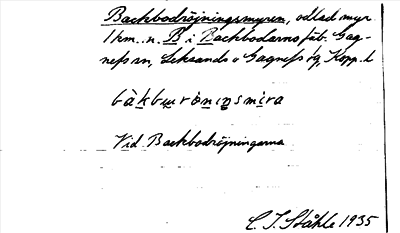 Backbodröjningsmyren, odlad myr
1 km. n. B i Backbodarna fäb. Gag-
nefs sn, Leksands o Gagnefs tg, Kopp. l.
Vid Backbodröjningarna
C. I. Ståhle 1935